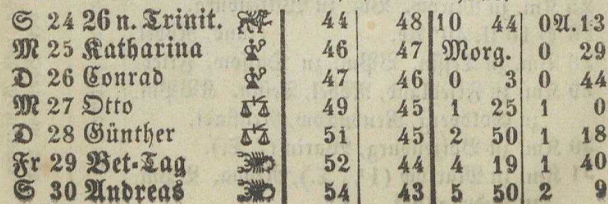 S 24 26 n. Trinit. 44 48 10 44 0A.13
M 25 Katharina 46 47 Morg. 0 29
D 26 Conrad 47 46 0 3 0 44
M 27 Otto 49 45 1 25 1 0
D 28 Günther 51 45 2 50 1 18
Fr 29 Bet-Tag 52 44 4 19 1 40
S 30 Andreas 54 43 5 50 2 9